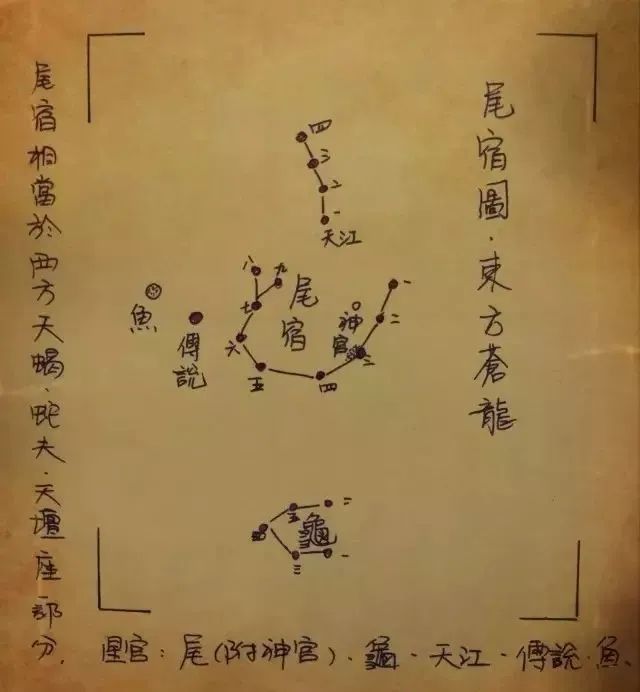 尾宿圖·東方蒼龍
四
三
二
一
天江
八
九
七
六
五
四
三
二
一
尾宿
神官
魚
傅說
二
五
四
三
一
龜
尾宿相當於西方天蝎、蛇夫、天壇座部分.
星官:尾(附神官)、龜·天江·傅說·魚、